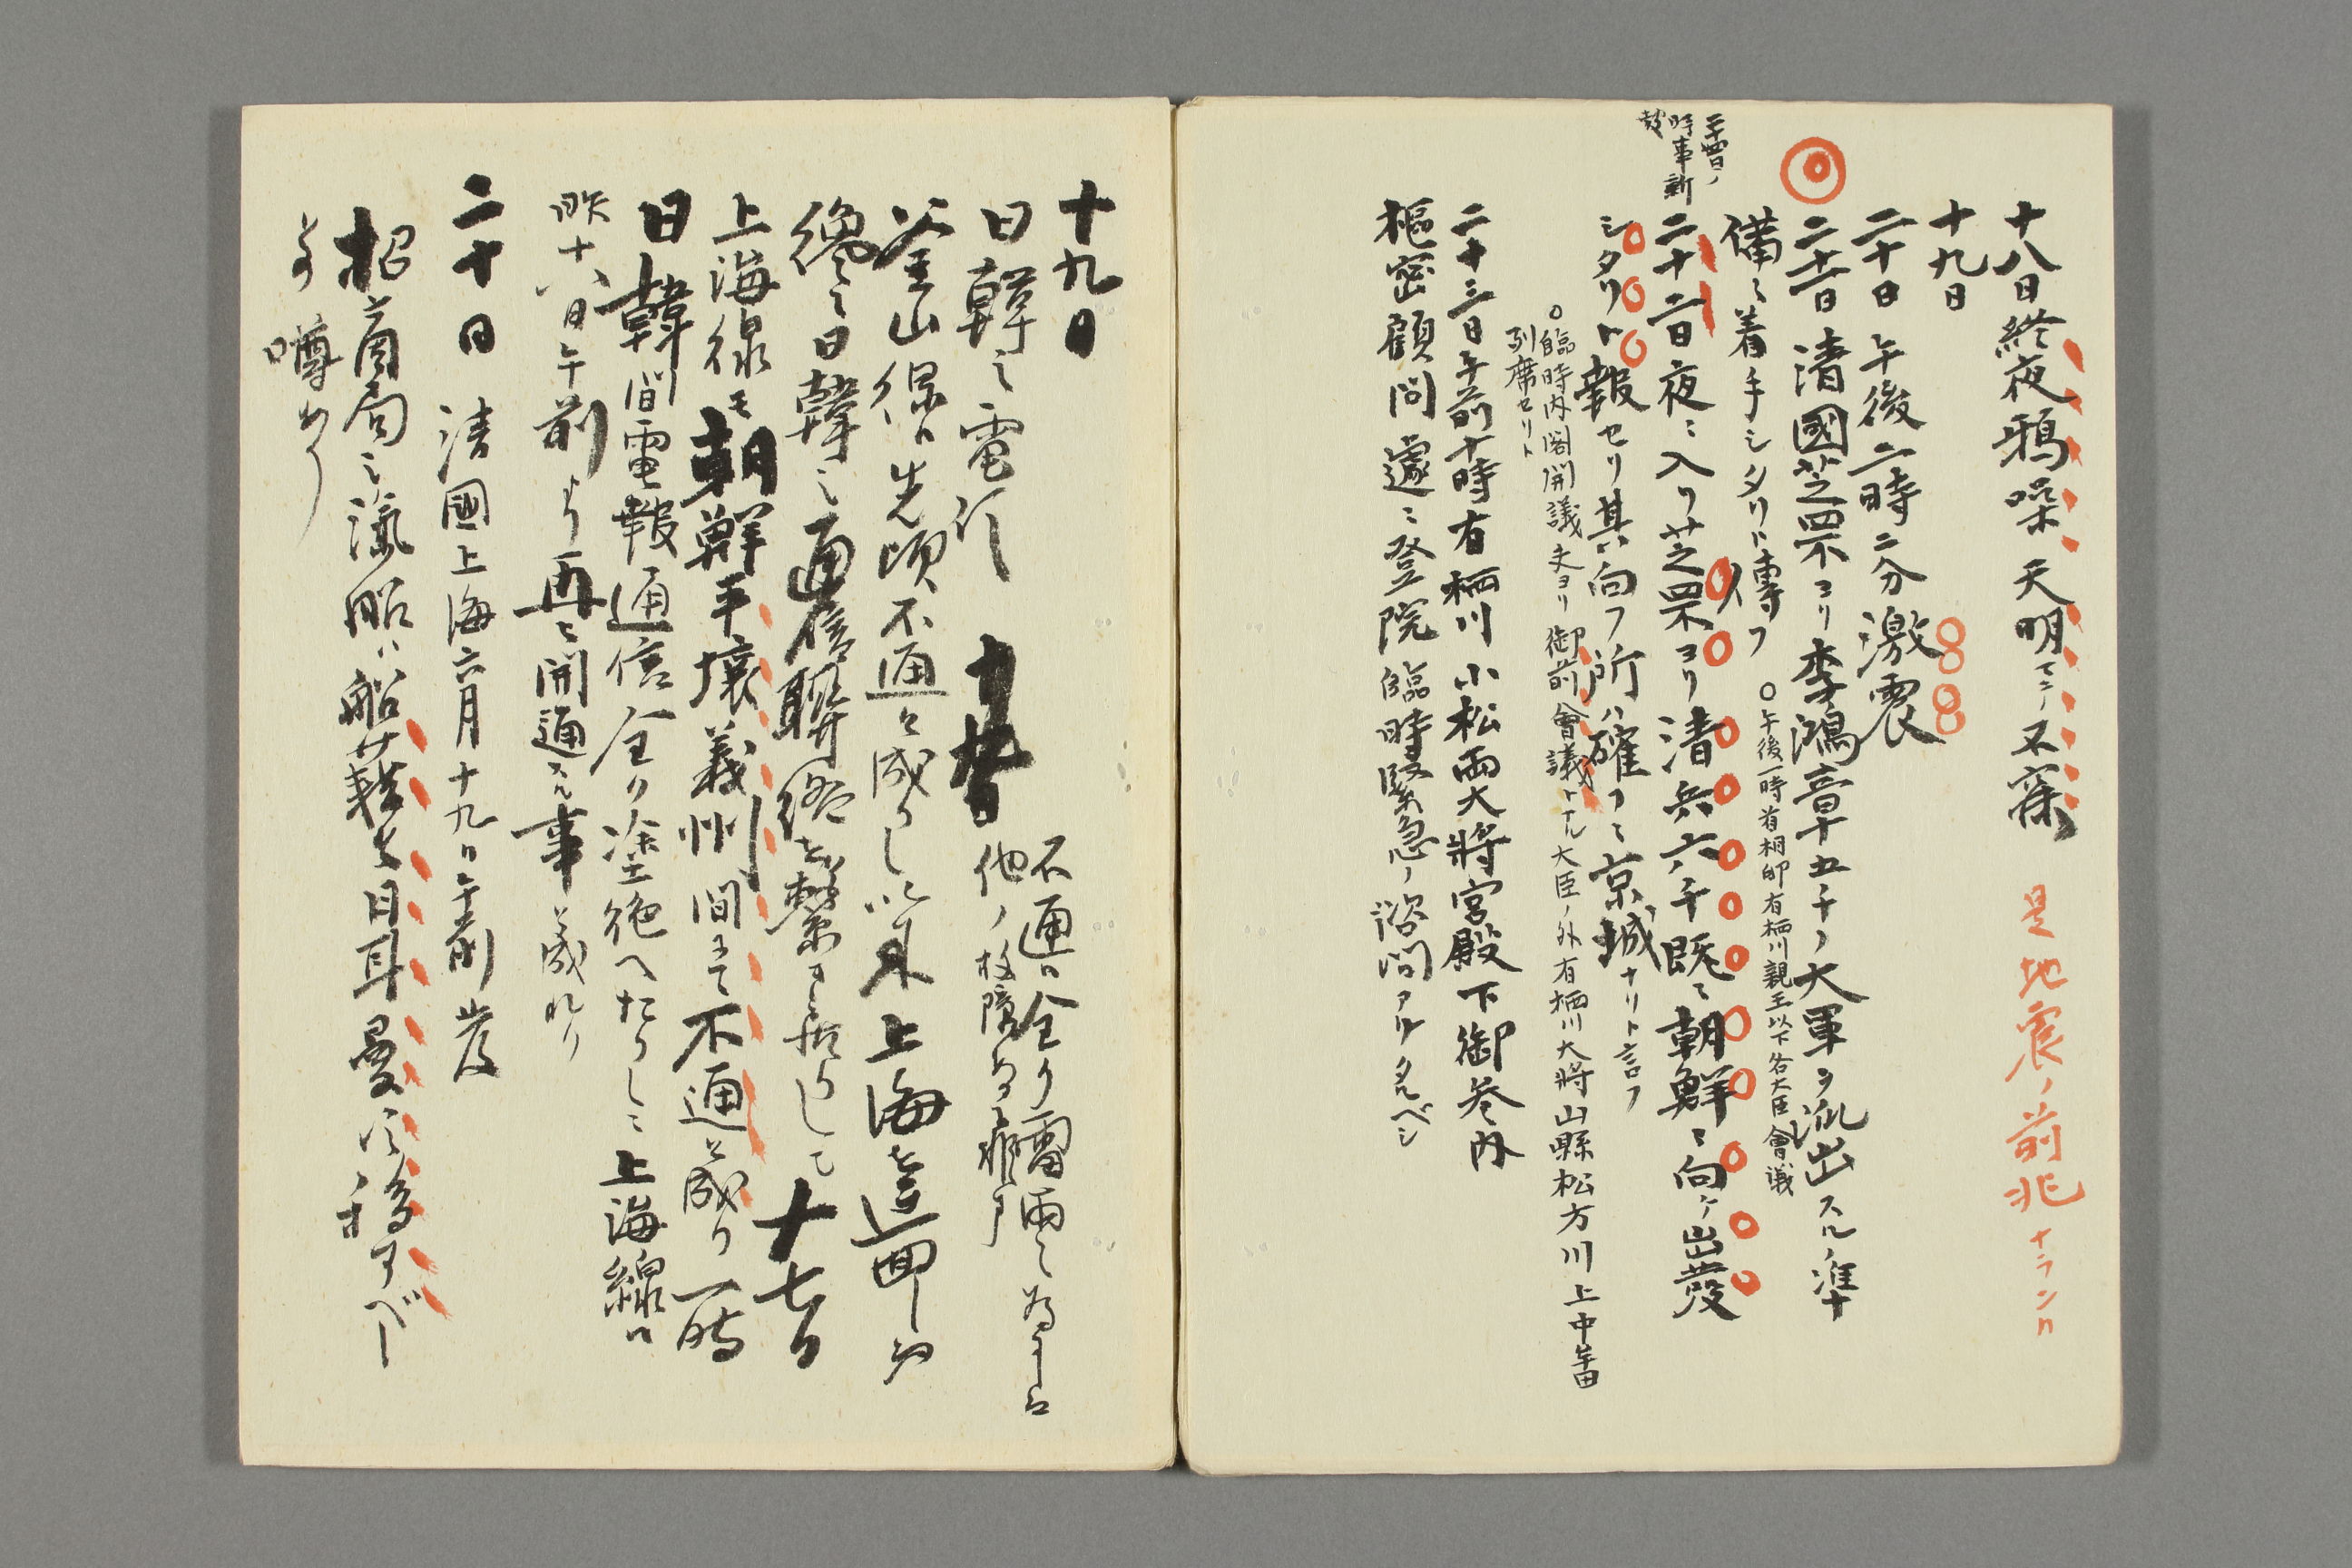 十八日終夜鴉噪天明マデ不寐 是地震ノ前兆ナランカ
十九日
二十日 午後二時二分激震
二十一日 清國芝罘ヨリ李鴻章十五千ノ大軍ヲ派出スルノ準
備ニ着手シタリト傳フ
○午後一時首相邸有栖川親王以下各大臣會議
時事新
報
二十二日夜ニ入リ芝罘ヨリ清兵六千既ニ朝鮮ニ向ケ出発
シタリト報セリ其向フ所ハ確ニ京城ナリト言フ
○臨時内閣開議夫ヨリ御前會議トナル大臣ノ外有栖川大將山縣松方川上中牟田
列席セリト
二十三日午前十時有栖川小松両大將宮殿下御参内
樞密顧問遽ニ登院臨時緊急ノ諮問アルタルベシ
十九日
日韓之電信
不通ハ全り雷雨之為にして
他ノ故障ある非ず
釜山線ハ先頃不通と成りし以来上海を迂回し
纔之日韓之通信聯絡を繋
十七日
上海線モ朝鮮平壌義州間にて不通と成り一時
日韓間電報通信全り塗絶へたりしニ上海線ハ
昨十八日午前より再ヒ開通スル事と成れり
二十日 清國上海六月十九日午前発
招商局之滊船ハ船籍を日耳曼に移すべし
との噂あり